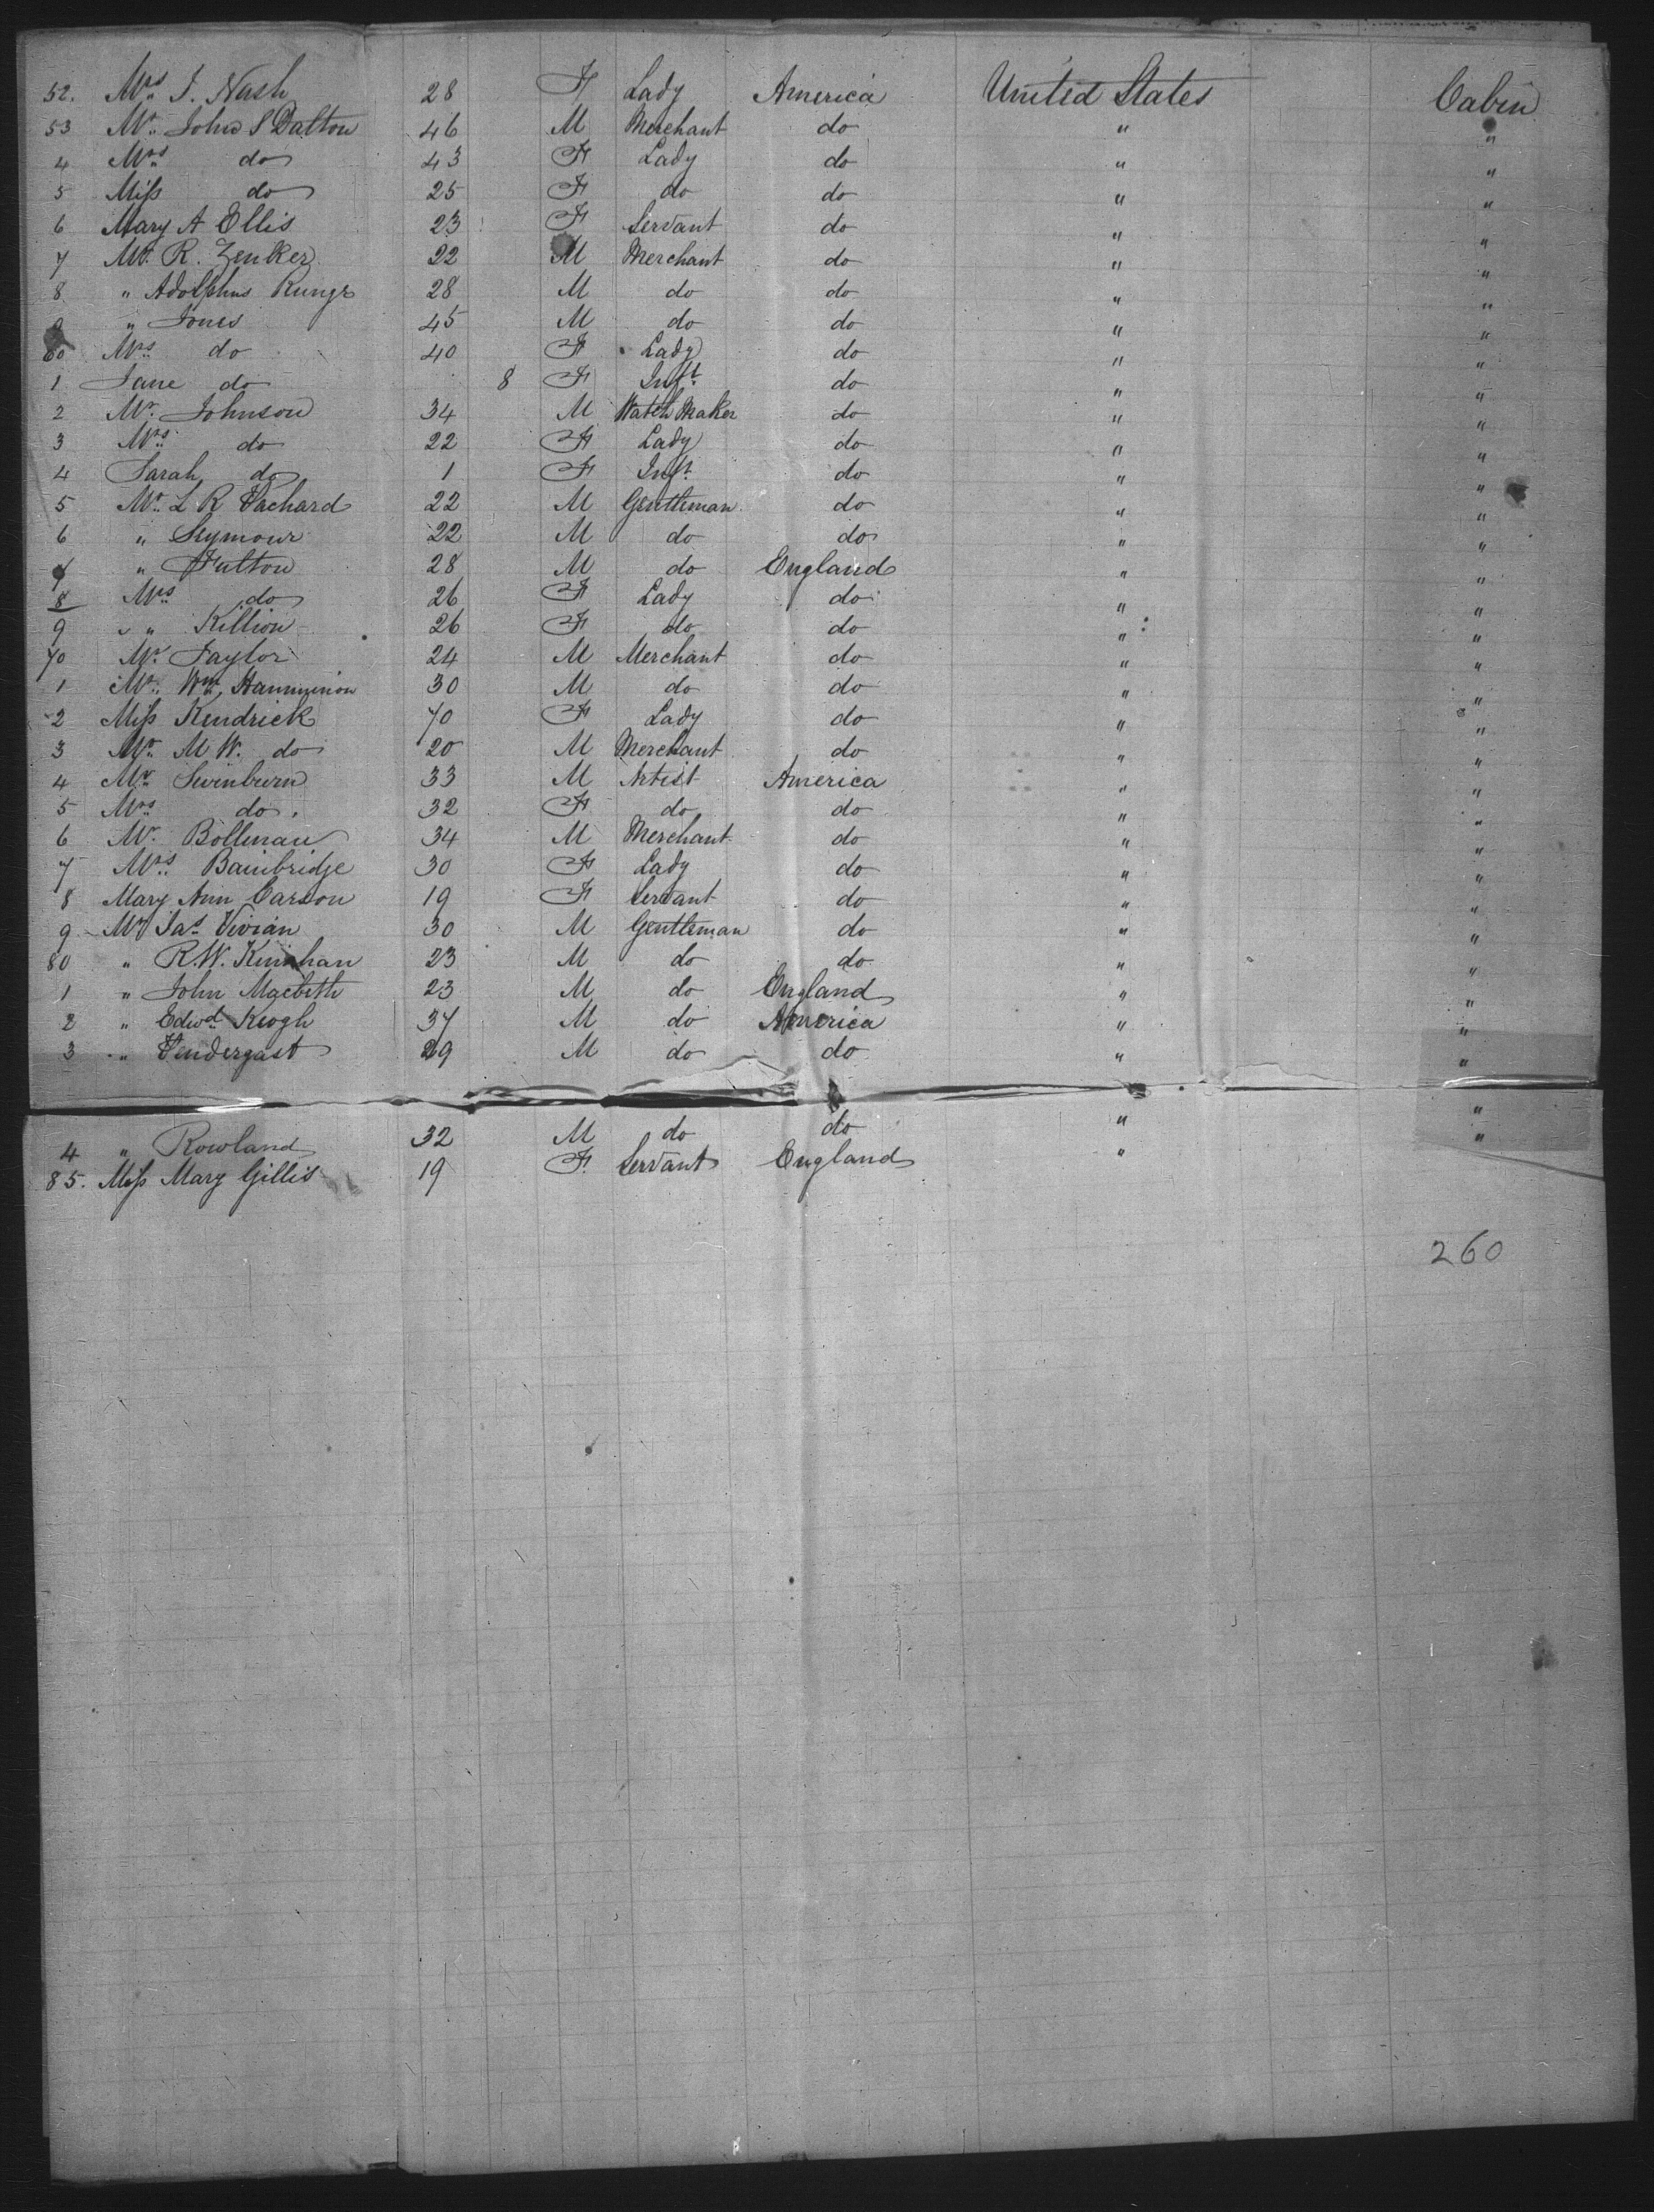 52. Mrs J. Nash 28 F Lady America United States Cabin
53 Mr. John S Dalton 46 M Merchant do " "
4 Mrs do 43 F Lady do " "
5 Miss do 25 F do do " "
6 Mary A Ellis 23 F Servant do " "
7 Mr. R. Zenker 22 M Merchant do " "
8 " Adolphus Runge 28 M do do " "
9 " Jones 45 M do do " "
60 Mrs do 40 F Lady do " "
1 Jane do 8 F Inft do " "
2 Mr. Johnson 34 M Watch Maker do " "
3 Mrs do 22 F Lady do " "
4 Sarah do 1 F Inft do " "
5 Mr. L R Pachard 22 M Gentleman do " "
6 " Seymour 22 M do do " "
7 " Fulton 28 M do England " "
8 Mrs do 26 F Lady do " "
9 " " Killion 26 F do do " "
70 Mr. Taylor 24 M Merchant do " "
1 Mr. Wm. 30 M do do " "
2 Miss Kendrick 70 F Lady do " "
3 Mr. M W. do 20 M Merchant do " "
4 Mr Swinburn 33 M Artist America " "
5 Mrs do. 32 F do do " "
6 Mr. Bollman 34 M Merchant do " "
7 Mrs. Bainbridge 30 F Lady do " "
8 Mary Ann Carson 19 F Servant do " "
9 Mr Jas. Vivian 30 M Gentleman do " "
80 " R.W. Kinahan 23 M do do " "
1 " John Macbeth 23 M do England " "
2 " Edwd. Keogh 37 M do America " "
3 " Pendergast 29 M do do " "
4 " Rowland 32 M do do " "
85. Miss Mary Gillis 19 F. Servant England " "
260